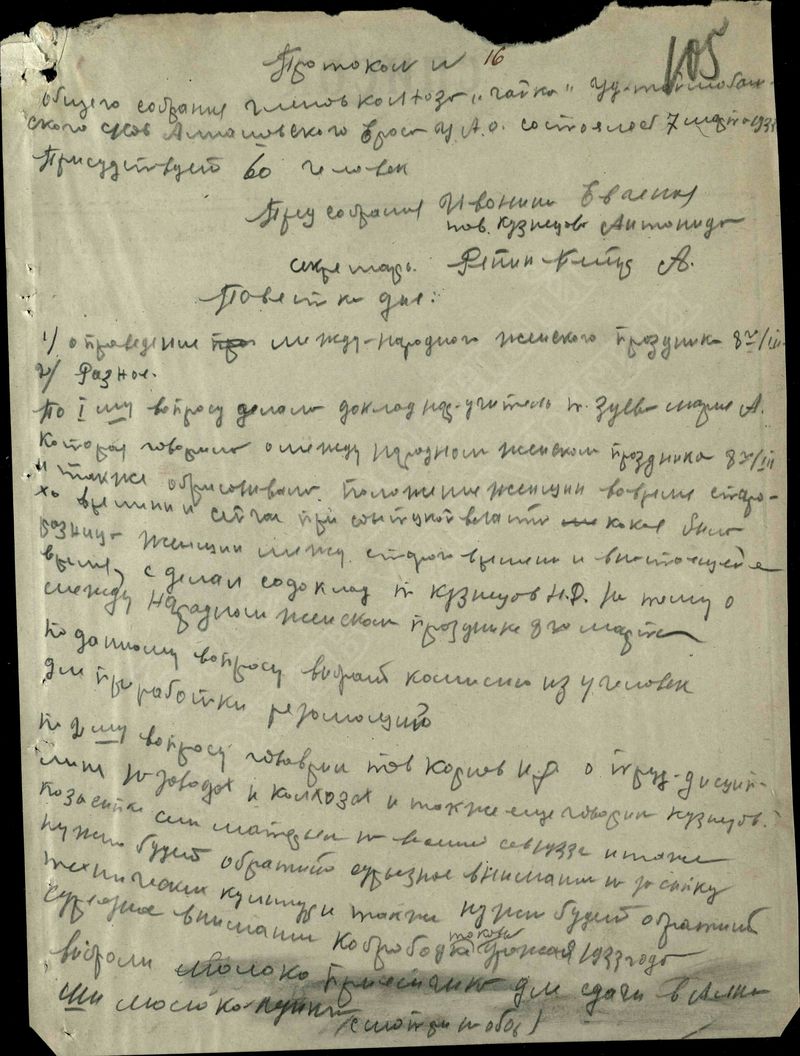 105
Протокол № 16
общего собрания членов колхоза „Чайка" Уд-
ского с/сов Алнашского Ероса У.А.О. состоялось 7 марта 1933
Присудствует 60 человек
Пред собрания Ивонин
тов. Кузнецова Антонида
секретарь. Репин А.
Повестка дне:
1) о проведение между-народного женского праздника 8го/III
2) Разное.
По I му вопросу делала доклад учитель т. Зуева Мария А.
которая говорила о между народном женском празднике 8го/III
и также обрисовала положение женщин вовремя старо-
времени и сейчас при советской власти какая была
разница женщин между старого времени и
время, сделал содоклад т Кузнецов Н.Ф. на тему о
между народном женском празднике 8го марта
по данному вопросу выбрать комисию из 4 человек
для проработки резолюций
по 2 му вопросу говорил тов Корнев о труд-дисцип-
лине заводах и колхозах и также еще говорил Кузнецов.
нужно будет обратить сурьезное внимание
технических культур и также нужно будет обратить
сурьезное внимание урожая 1933 года
выбрали молоко приемщика для сдачи в Ална-
ши молоко-пункт
(смотри на обор)